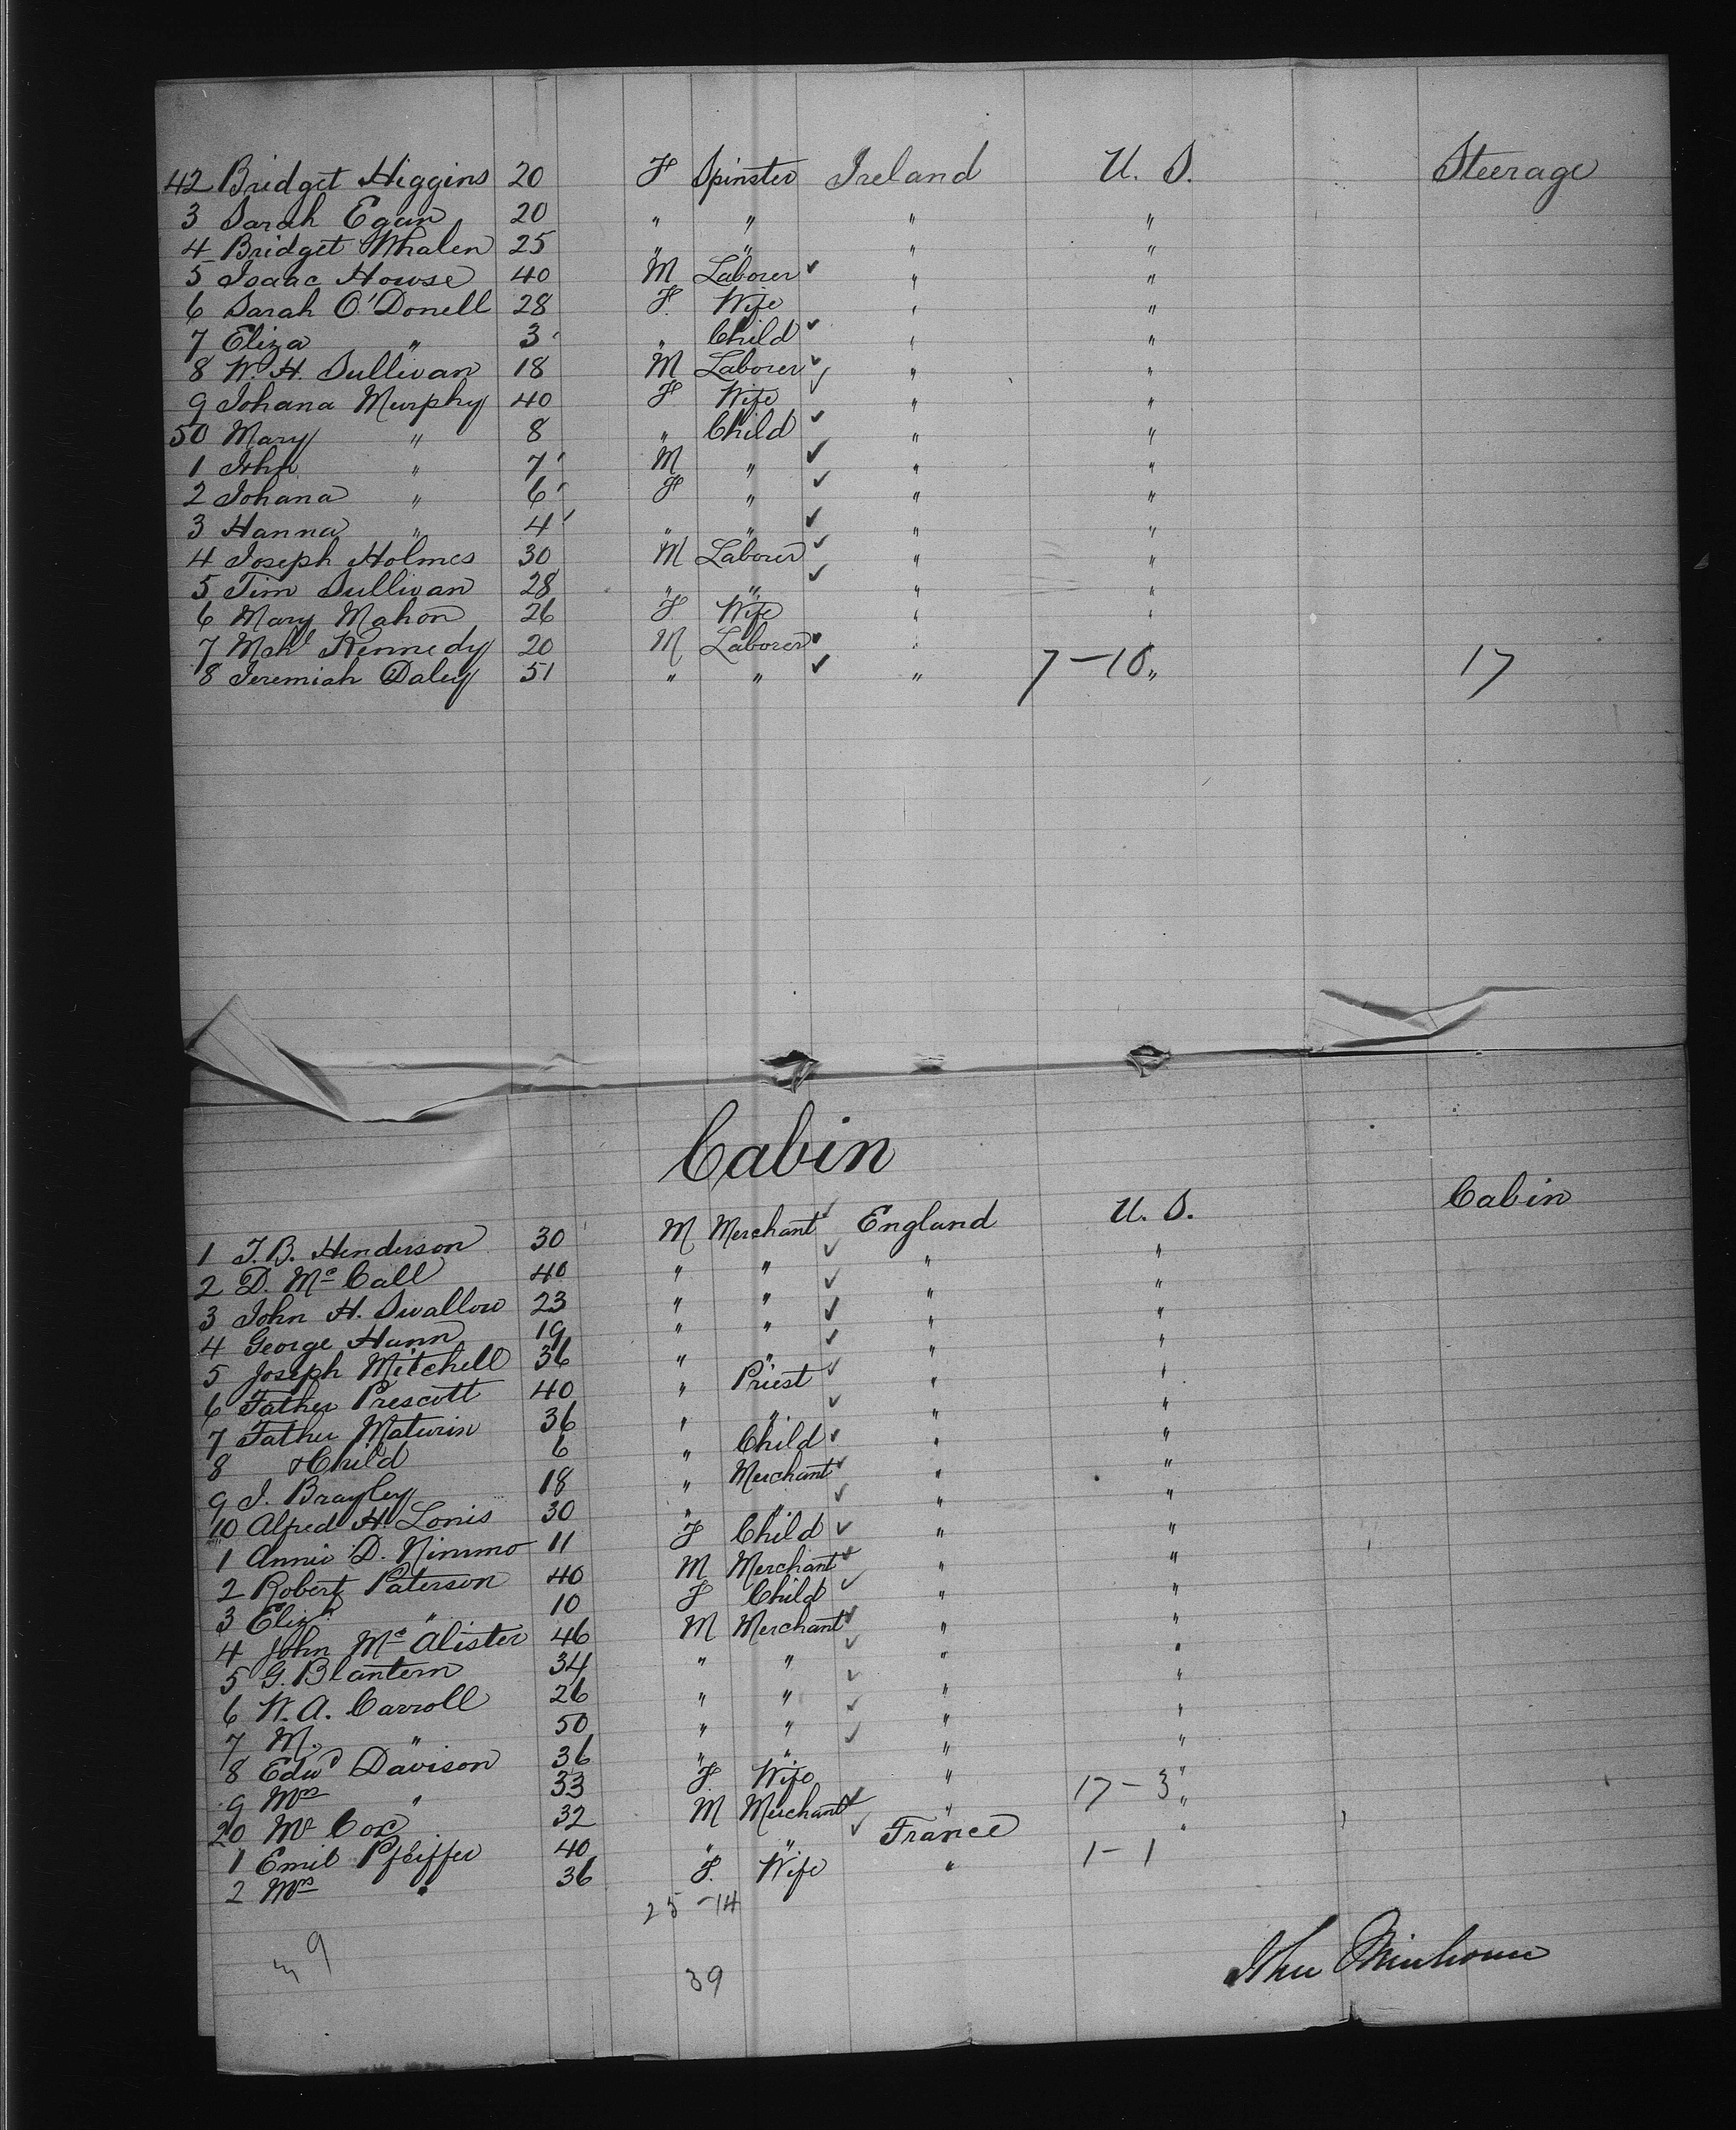 42 Bridget Higgins 20 F Spinster Ireland U. S. Steerage
3 Sarah Egan 20 " " " "
4 Bridget Whalen 25 " " " "
5 Isaac Howse 40 M Laborer ✓ " "
6 Sarah O'Donell 28 F. Wife " "
7 Eliza " 3 " Child ✓ " "
8 W. H. Sullivan 18 M Laborer ✓ " "
9 Johana Murphy 40 F Wife ✓ " "
50 Mary " 8 " Child ✓ " "
1 John " 7 M " ✓ " "
2 Johana " 6 F " ✓ " "
3 Hanna " 4 " " ✓ " "
4 Joseph Holmes 30 M Laborer ✓ " "
5 Tim Sullivan 28 " " ✓ " "
6 Mary Mahon 26 F Wife " "
7 Mchl Kennedy 20 M Laborer ✓ "
8 Jeremiah Daley 51 " " ✓ " 7-10 " 17
Cabin
1 J. B. Henderson 30 M Merchant ✓ England U. S. Cabin
2 D. Mc Call 40 " " ✓ " "
3 John H. Swallow 23 " " ✓ " "
4 George Hann 19 " " ✓ " "
5 Joseph Mitchell 36 " " ✓ " "
6 Father Prescott 40 " Priest ✓ " "
7 Father Maturin 36 " " ✓ " "
8 & Child 6 " Child ✓ " "
9 J. Brayley 18 " Merchant ✓ " "
10 Alfred H. Lonis 30 " " ✓ " "
1 Annie D. Nimmo 11 F Child ✓ " "
2 Robert Paterson 40 M Merchant ✓ " "
3 Elizh " 10 F Child ✓ " "
4 John Mc Alister 46 M Merchant ✓ " "
5 G. Blantern 34 " " ✓ " "
6 W. A. Carroll 26 " " ✓ " "
7 M. " 50 " " ✓ " "
8 Edwd Davison 36 " " ✓ " "
9 Mrs " 33 F. Wife " 17-3 "
20 Mr Cox 32 M Merchant ✓ " "
1 Emil Pfeiffer 40 " " ✓ France "
2 Mrs " 36 F. Wife " 1-1
25-14
9
39
John